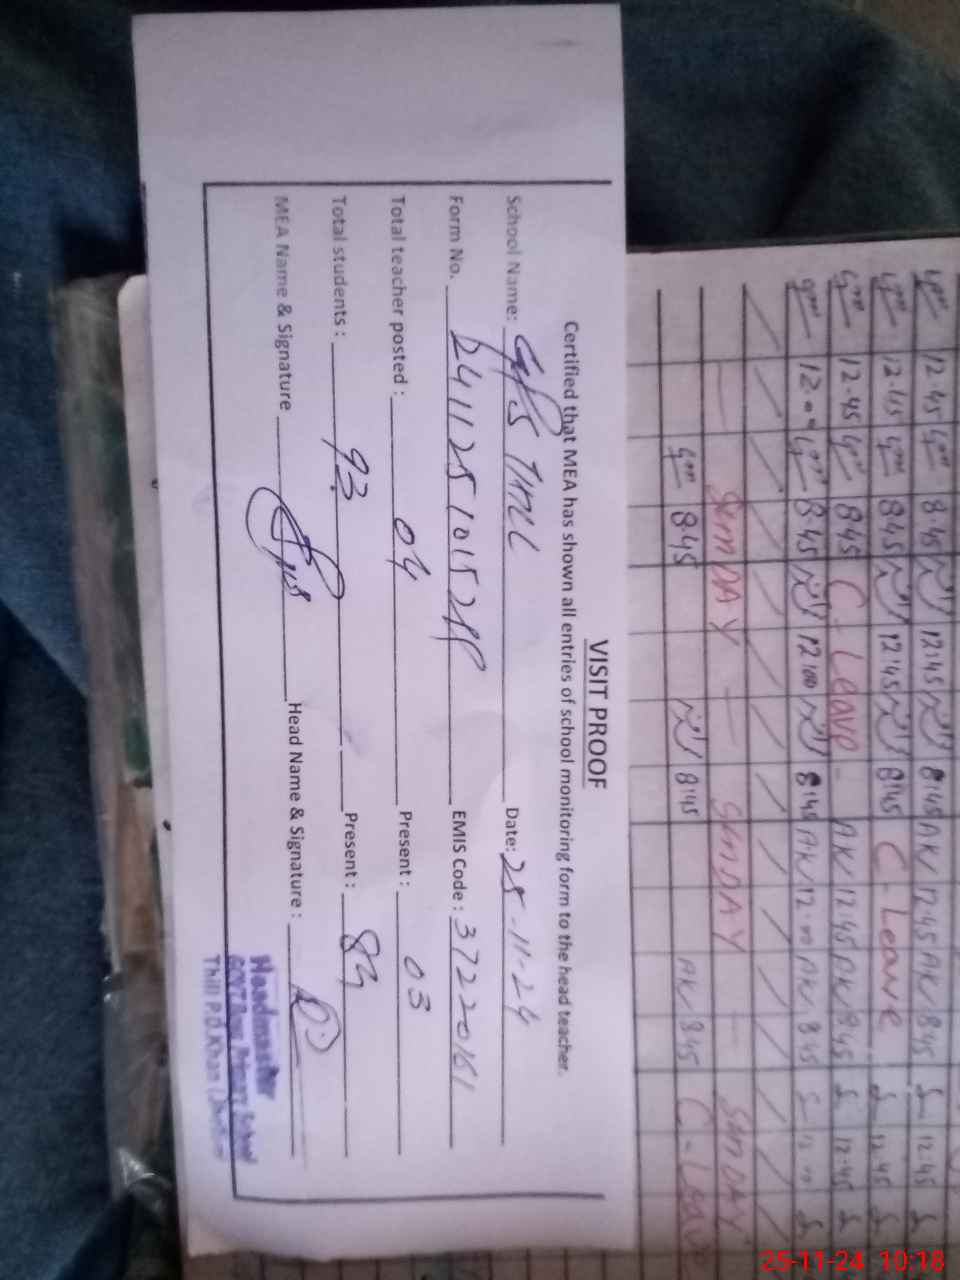 VISIT PROOF
Certified that MEA has shown all entries of school monitoring form to the head teacher.
School Name: GPS THILL Date: 25-11-24
Form No. EMIS Code: 37220161
Total teacher posted: 04 Present: 03
Total students: 93 Present: 89
MEA Name & Signature Head Name & Signature:
Headmaster
GOVT. Boys Primary School
Thill P.D.Khan (Jhelum)
12.45 8.45 12:45 8:45 AK 12.45 AK 8.45 12:45
12.45 8.45 12:45 8:45 C-Leave 12.45
12.45 8.45 C-Leave - AK 12.45 AK 8.45 12:45
12.00 8.45 12:00 8:45 AK 12.00 AK 8.45 12.00
SUNDAY SUNDAY SUNDAY
8.45 8:45 AK 8.45 C-Leave
25-11-24 10:18